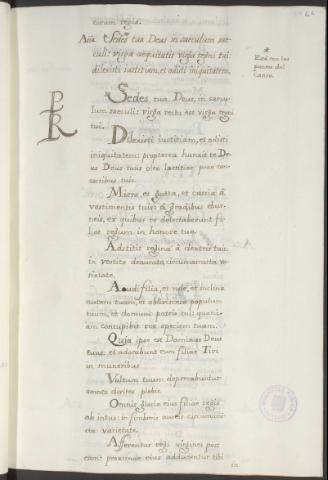 corum regis.
Aña. Sedes tua Deus in saeculum sae-
culi: virga aequitatis virga regni tui:
dilexisti justitiam, et odisti iniquitatem.
Está con los
del
Canto.
Sedes tua, Deus, in saecu-
lum saeculi: virga recta est virga regni
tui.
Dilexisti iustitiam, et odisti
iniquitatem: propterea hunxit te De-
us Deus tuus oleo laetitiae prae con-
sortibus tuis.
Mirra, et gutta, et cassia a
vestimentis tuis: a gradibus ebur-
neis, ex quibus te delectaberunt fi-
liae regum in honore tuo.
Adstitit regina a dextris tuis:
in vestitu deaurato, circumamicta va-
rietate.
Audi filia, et vide, et inclina
aurem tuam, et obliviscere populum
tuum, et domum patris tui. quoni-
am concupibit rex speciem tuam.
Quia ipse est Dominus Deus
tuus: et adorabunt eum filiae Tiri
in muneribus
Vultum tuum deprecabuntur
omnes divites plebis.
Omnis gloria eius filiae regis
ab intus: in fimbriis aureis circumami-
cta varietate.
Afferentur regi virgines post
eam: proximae eius adducentur tibi
in